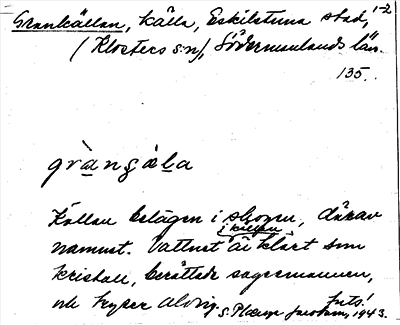 Grankällan, källa, Eskilstuna stad, 1-2
(Klosters sn), Södermanlands län.
135.
gràngǽla
Källan belägen i skogen, därav
namnet. Vattnet i källan är klart som
kristall, berättade sagesmannen,
och fryser aldrig. forts!
S. Jacobsson, 1943.